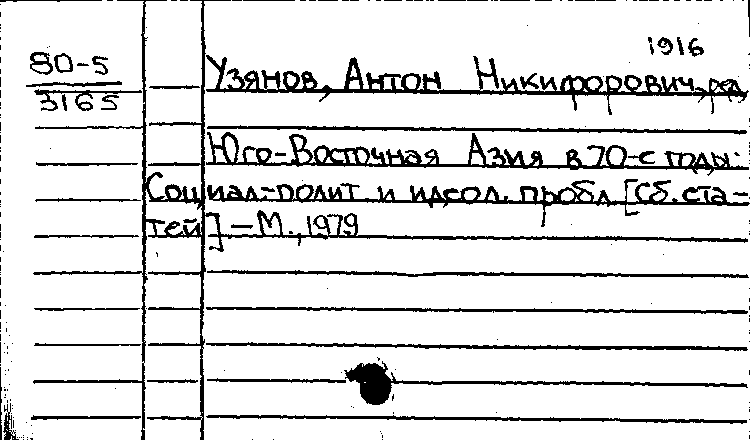 1916
80-5
3165
Узянов, Антон Никифорович, ред.
Юго-Восточная Азия в 70-е годы:
Социал.-полит и идеол. пробл [Сб. ста-
тей] - М., 1979